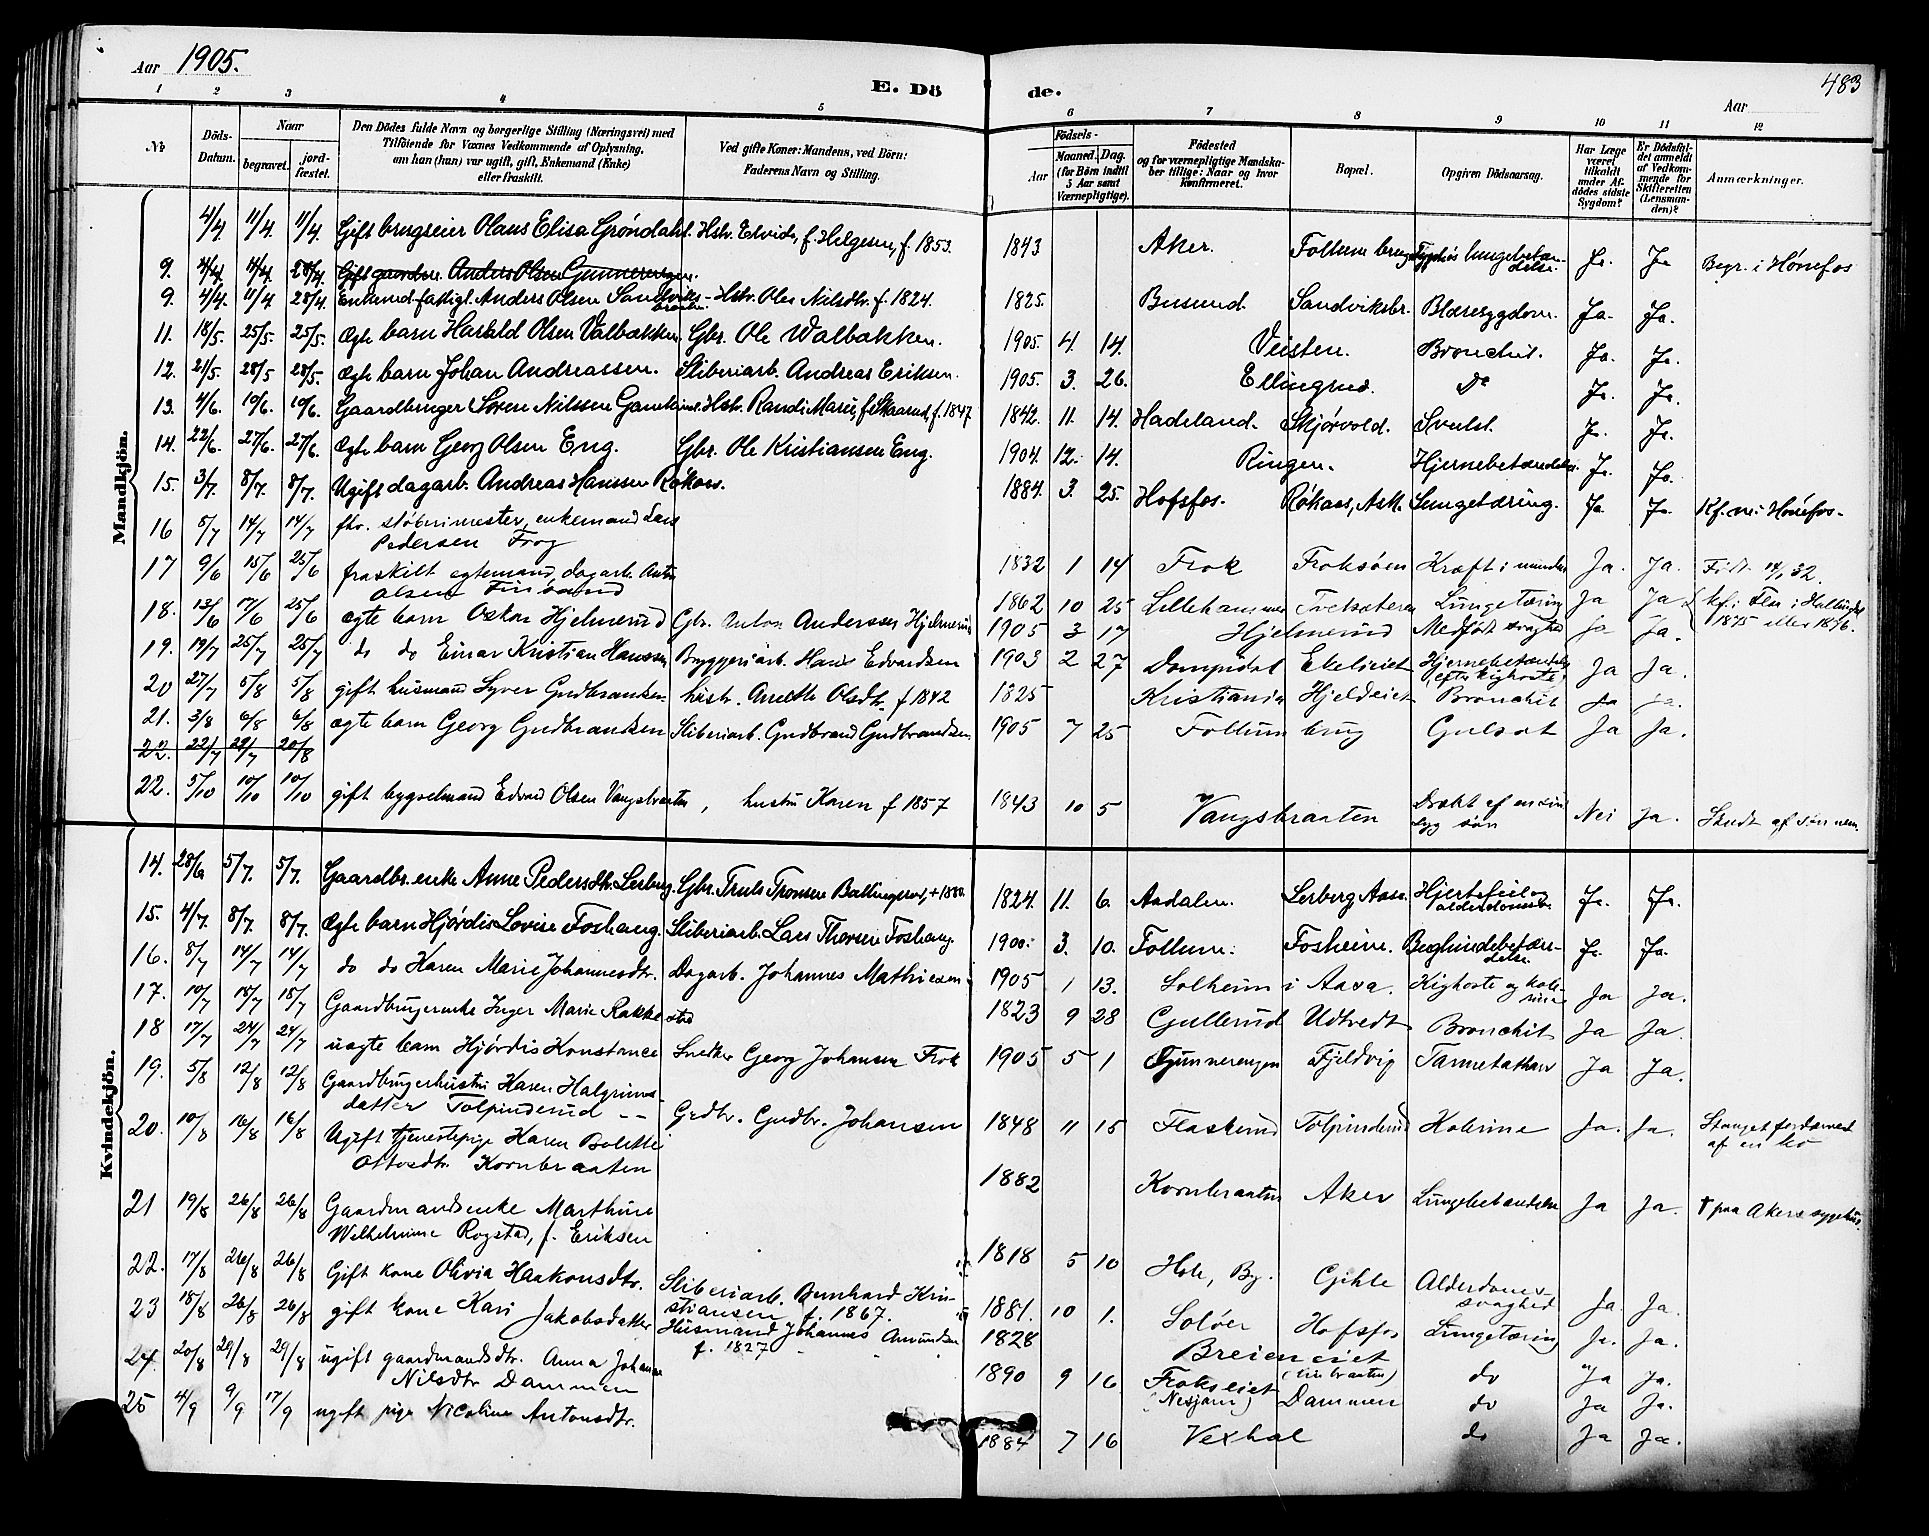 Aar 1905.
E. Dö
de.
483
Aar
1 2 3 4 5 6 7 8 9 10 11 12
No
Döds-Datum.
Naar
begravet.
jord-fæstet.
Den Dödes fulde Navn og borgerlige Stilling (Næringsvei) med
Tilföiende for Vœrnes Vedkommende af Oplysning,
om han (hun) var ugift, gift, Enkemand (Enke)
eller fraskilt.
Ved gifte Koner: Mandens, ved Börn:
Faderens Navn og Stilling.
Födsels-
Aar
Maaned. Dag.
(for Børn indtil
5 Aar samt
Værnepligtige).
Födested
og for værnepligtige Mandska-
ber tillige: Naar og hvor
konfirmeret.
Bopæl.
Opgiven Dödsaarsag.
Har Læge
været
tilkaldt
under Af-
dödes sidste
Sygdom?
Er Dödsfal-
det anmeldt
af Vedkom-
mende for
Skifteretten
(Lensman-
den)?
Anmærkninger.
Mandkjön.
4/4. 11/4. 11/4. Gift brugseier Olaus Elisa Grøndahl. Hstr. Elvida, f. Helgesen, f. 1853. 1843 Aker. Follum brug Lungebetæn-delse. Ja. Ja Begr. i Hønefos
9. 4/4 11/4 28/4. Gift gaardbr. Anders Olsen Gunnerengen.
9. 4/4. 11/4 28/4. Enkemd. fattigl. Anders Olsen Sandviks-braaten Hstr. Olea Nilsdtr. f. 1824. 1825. Busund. Sandviksbr. Blæresygdom. Ja. Ja.
11. 18/5. 25/5. 25/5. Ægte barn Harald Olsen Valbakken. Gbr. Ole Walbakken. 1905. 4. 14. Veisten. Bronchit. Ja. Ja.
12. 21/5. 28/5 28/5. Ægte barn Johan Andreassen. Sliberiarb. Andreas Eriksen. 1905. 3. 26. Ellingsrud. Do Ja. Ja.
13. 4/6. 10/6. 10/6. Gaardbruger Søren Nilssen Hstr. Randi Marie, f. Skaarud, f. 1847 1842. 11. 14. Hadeland. Skjørvold. Svulst. Ja. Ja.
14. 22/6. 27/6. 27/6. Ægte barn Georg Olsen Eng. Gbr. Ole Kristiansen Eng. 1904. 12. 14. Ringen. Hjernebetændelse. Ja. Ja.
15. 3/7. 8/7. 8/7. Ugift dagarb. Andreas Hanssen Røkaas. 1884. 3. 25. Hofsfos. Røkaas, Ask. Lungetæring. Ja. Ja. Kf. Hønefos.
16 5/7 14/7 14/7 fhv. støberimester, enkemand Lars
Pedersen Frog 1832 1 14 Frok Froksøen Kræft i munden Ja. Ja. Født 14/1 32.
17 9/6 15/6 25/6 fraskilt egtemand, dagarb. Anton
Olsen 1862 10 25 Lillehammer Lungetæring Ja Ja. kf. i Flaa i Hallingdal
1875 eller 1876.
18. 13/6 17/6 25/6 ægte barn Oskar Hjelmerud Gbr. Anton Anderssen Hjelmerud 1905 3 17 Hjelmerud Medfødt svaghed Ja Ja.
19. 19/7 25/7 25/7 do do Einar Kristian Hanssen Bryggeriarb. Hans Edvardsen 1903 2 27 Ekelieiet Hjernebetændelse
(efter kighoste) Ja Ja.
20 27/7 5/8 5/8 gift husmand Syver Gudbrandsen. hustr. Anette Olsdtr. f 1842 1825 Kristiania Hjeldeiet Bronchit Ja Ja.
21. 3/8 6/8 6/8 ægte barn Georg Gudbrandsen Sliberiarb. Gudbrand Gudbrandsen. 1905 7 25 Follum brug Gulsot Ja Ja.
22. 22/7 29/7 20/8
22. 5/10 10/10 10/10 gift bygselmand Edvard Olsen Vangsbraaten, hustru Karen f 1857 1843 10 5 Vangsbraaten Dræbt af en sind-
syg søn Nei Ja. Skudt af søn
Kvindekjön.
14. 28/6 5/7. 5/7. Gaardbr.enke Anne Pedersdtr. Lerberg. Gbr. Truls Tronsen +1880 1824. 11. 6. Aadalen. Lerberg, Aasa. Hjertefeil og
alderdomssv. Ja. Ja.
15. 4/7. 8/7. 8/7. Ægte barn Hjørdis Lovise Foshaug. Sliberiarb. Lars Thorsen Foshaug. 1900. 3. 10. Follum. Fosheim. Beghindebetæn-
delse Ja. Ja.
16. 8/7 14/7 14/7 do do Karen Marie Johannesdtr. Dagarb. Johannes Mathiesen 1905 1 13. Solheim i Aasa. Kighoste og kole-
rine Ja Ja.
17. 10/7 15/7 15/7 Gaardbrugerenke Inger Marie Rakkestad 1823 9 28 Gullerud Udtvedt Bronchit Ja Ja.
18 17/7 24/7 24/7 uægte barn Hjørdis Konstance Snedker Georg Johansen Frok 1905 5 1 Gunnerengen Fjeldvig Ja Ja.
19. 5/8 12/8 12/8 Gaardbrugerhustru Karen Halgrims-
datter Tolpinderud -- Grdbr. Gudbr. Johansen 1848 11 15 Flaskerud Tolpinderud Kolerine Ja. Ja. Stanget fordærvet
af en ko
20. 10/8 16/8 16/8 Ugift tjenestepige Karen Bolette
Ottosdtr. Kornbraaten 1882 Kornbraaten Aker Lungebetændelse Ja Ja. † paa Akers sygehus.
21 19/8 26/8 26/8 Gaardmandsenke Marthine
Wilhelmine Rogstad, f. Eriksen 1818 5 10 Hole, By. Gihle Alderdoms-
svaghed Ja Ja.
22. 17/8 26/8 26/8 Gift kone Olivia Haakonsdtr. Sliberiarb. Bernhard Kri-
stiansen f. 1867. 1881. 10 1. Soløer Hofsfos Lungetæring Ja. Ja.
23 18/8 26/8 26/8 gift kone Kari Jakobsdatter Husmand Johannes Amundsen
f. 1827 1828 Breieneiet do Ja Ja.
24. 20/8 29/8 29/8 ugift gaardmandsdtr. Anna Johanne
Nilsdtr Dammen 1890 9 16 Frokseiet
Dammen do Ja Ja.
25 4/9 9/9 17/9 ugift pige Nicoline Antonsdtr. 1884 7 16 Vexhal do Ja Ja.